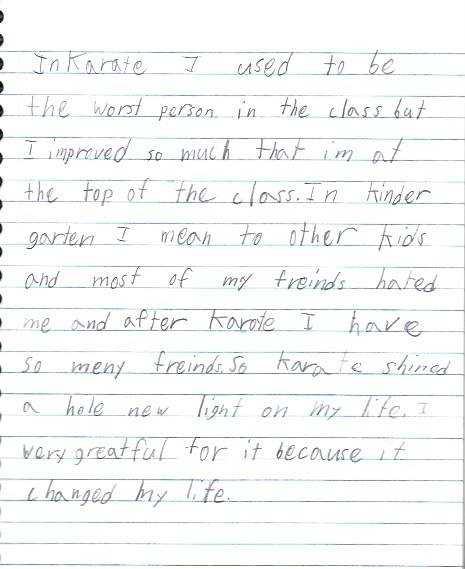 In Karate I used to be
the worst person in the class but
I improved so much that im at
the top of the class. In kinder
garten I mean to other kids
and most of my freinds hated
me and after karate I have
so meny freinds. So karate shined
a hole new light on my life. I
very greatful for it because it
changed my life.